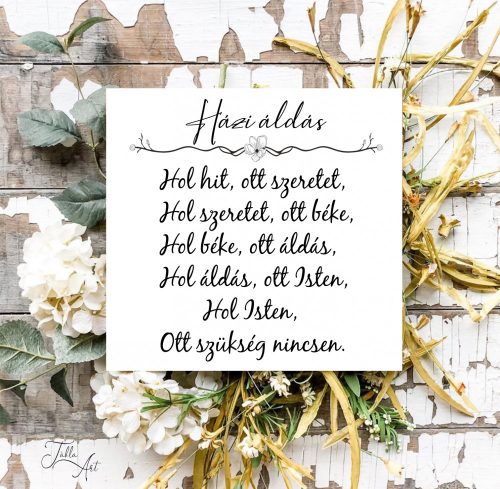 Házi áldás
Hol hit, ott szeretet,
Hol szeretet, ott béke,
Hol béke, ott áldás,
Hol áldás, ott Isten,
Hol Isten,
Ott szükség nincsen.
Tabla
Art